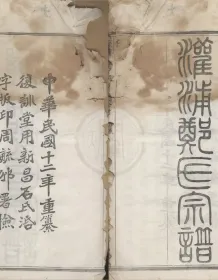 灌浦鄭氏宗譜
中華民國十二年重纂
復詠堂用新昌石氏活
字版印周毓邠署檢